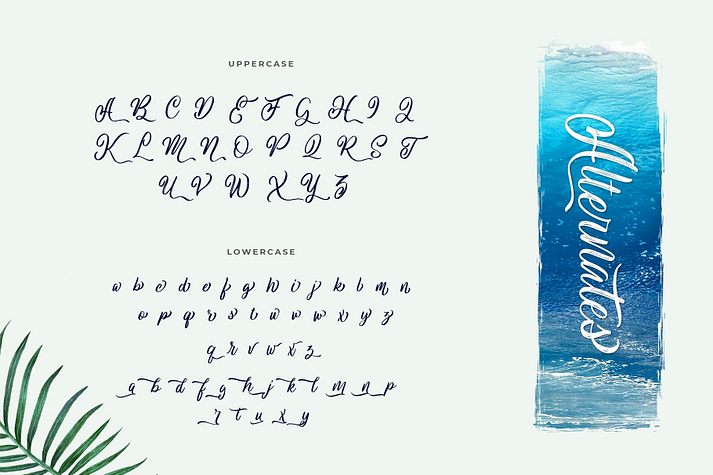 UPPERCASE
A B C D E F G H I J
K L M N O P Q R S T
U V W X Y Z
LOWERCASE
a b c d e f g h i j k l m n
o p q r s t u v w x y z
q r v w x z
a b d f g h j k l m n p
r t u x y
Alternates